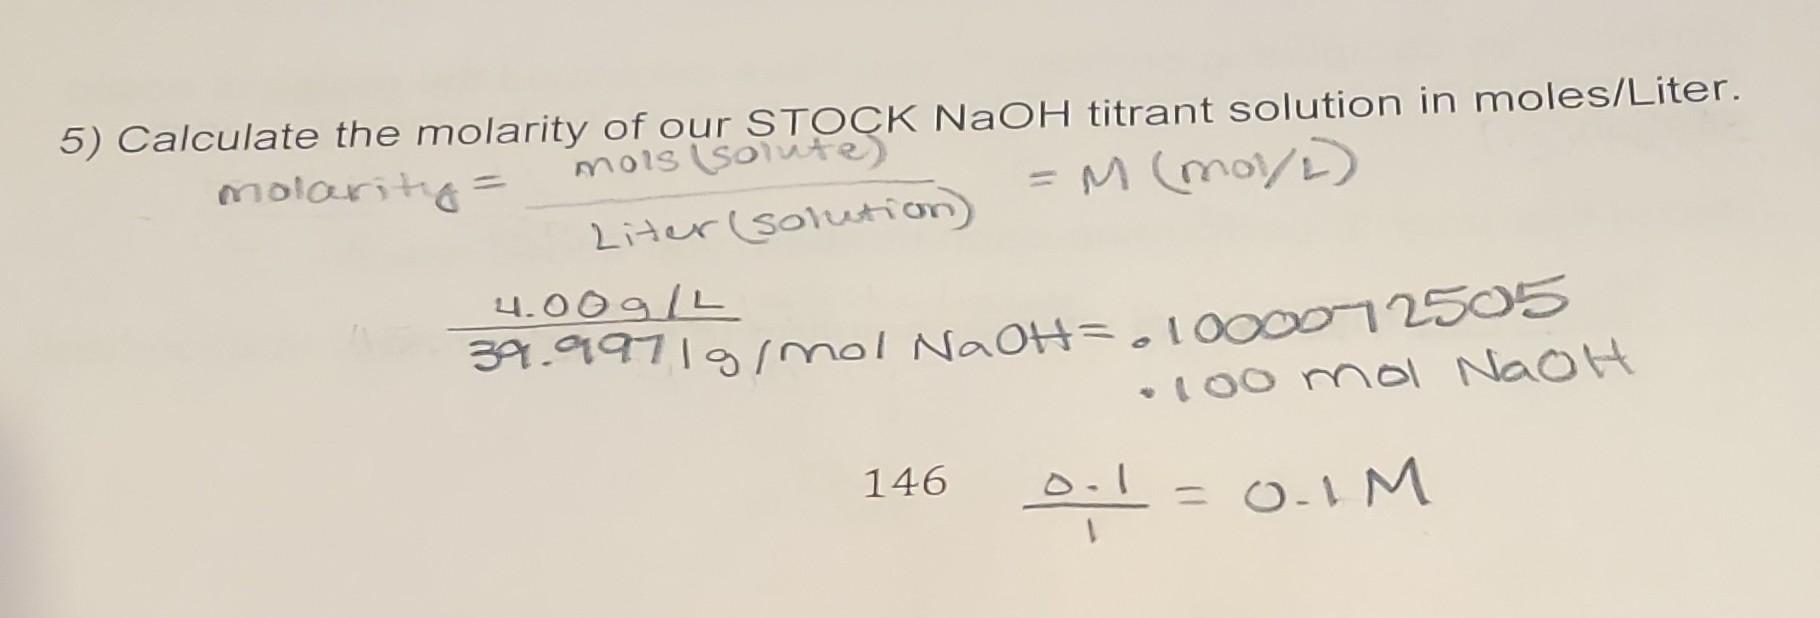 5) Calculate the molarity of our STOCK NaOH titrant solution in moles/Liter.
molarity = mols (solute) / Liter (solution) = M (mol/L)
4.00g/L / 39.9971g/mol NaOH = .1000072505
.100 mol NaOH
146
0.1 / 1 = 0.1M